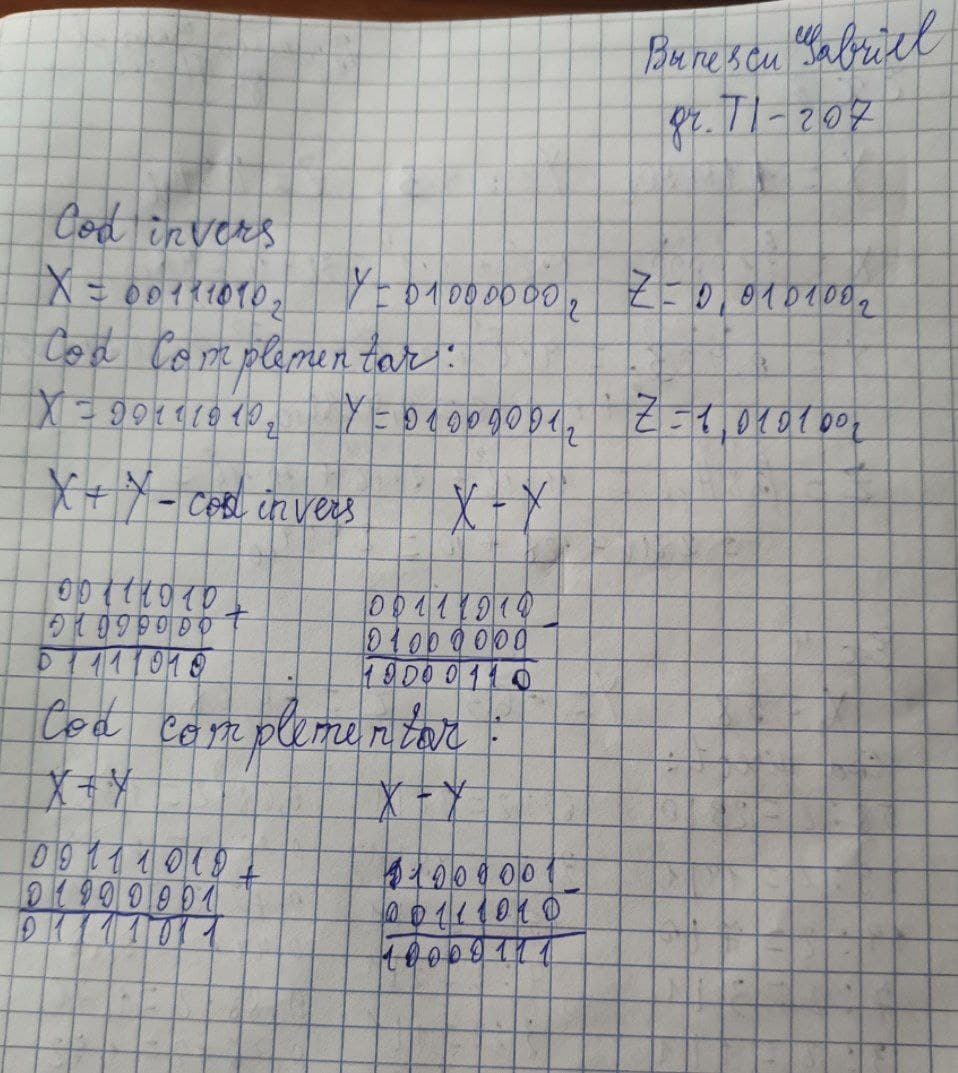 Bunescu Gabriel
gr. TI-207
Cod invers
X = 00111010₂ Y = 01000000₂ Z = 0,010100₂
Cod Complementar:
X = 00111010₂ Y = 01000001₂ Z = 1,010100₂
X + Y - cod invers X - Y
00111010 00111010
01000000 + 01000000 -
01111010 10000110
Cod complementar:
X + Y X - Y
00111010 11000001
01000001 + 00111010 -
01111011 10000111